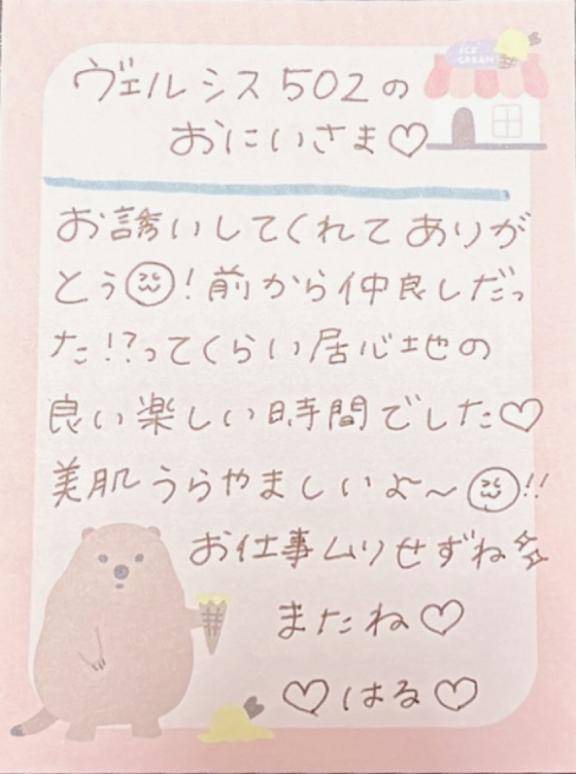 ICE
CREAM
ヴェルシス502の
おにいさま♡
お誘いしてくれてありが
とう!前から仲良しだっ
た!?ってくらい居心地の
良い楽しい時間でした♡
美肌うらやましいよ〜!!
お仕事ムリせずね
またね♡
♡はる♡